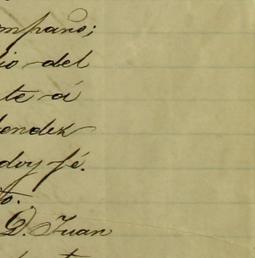 mpaño;
io del
te á
endez
doy fé.
to.
D. Juan